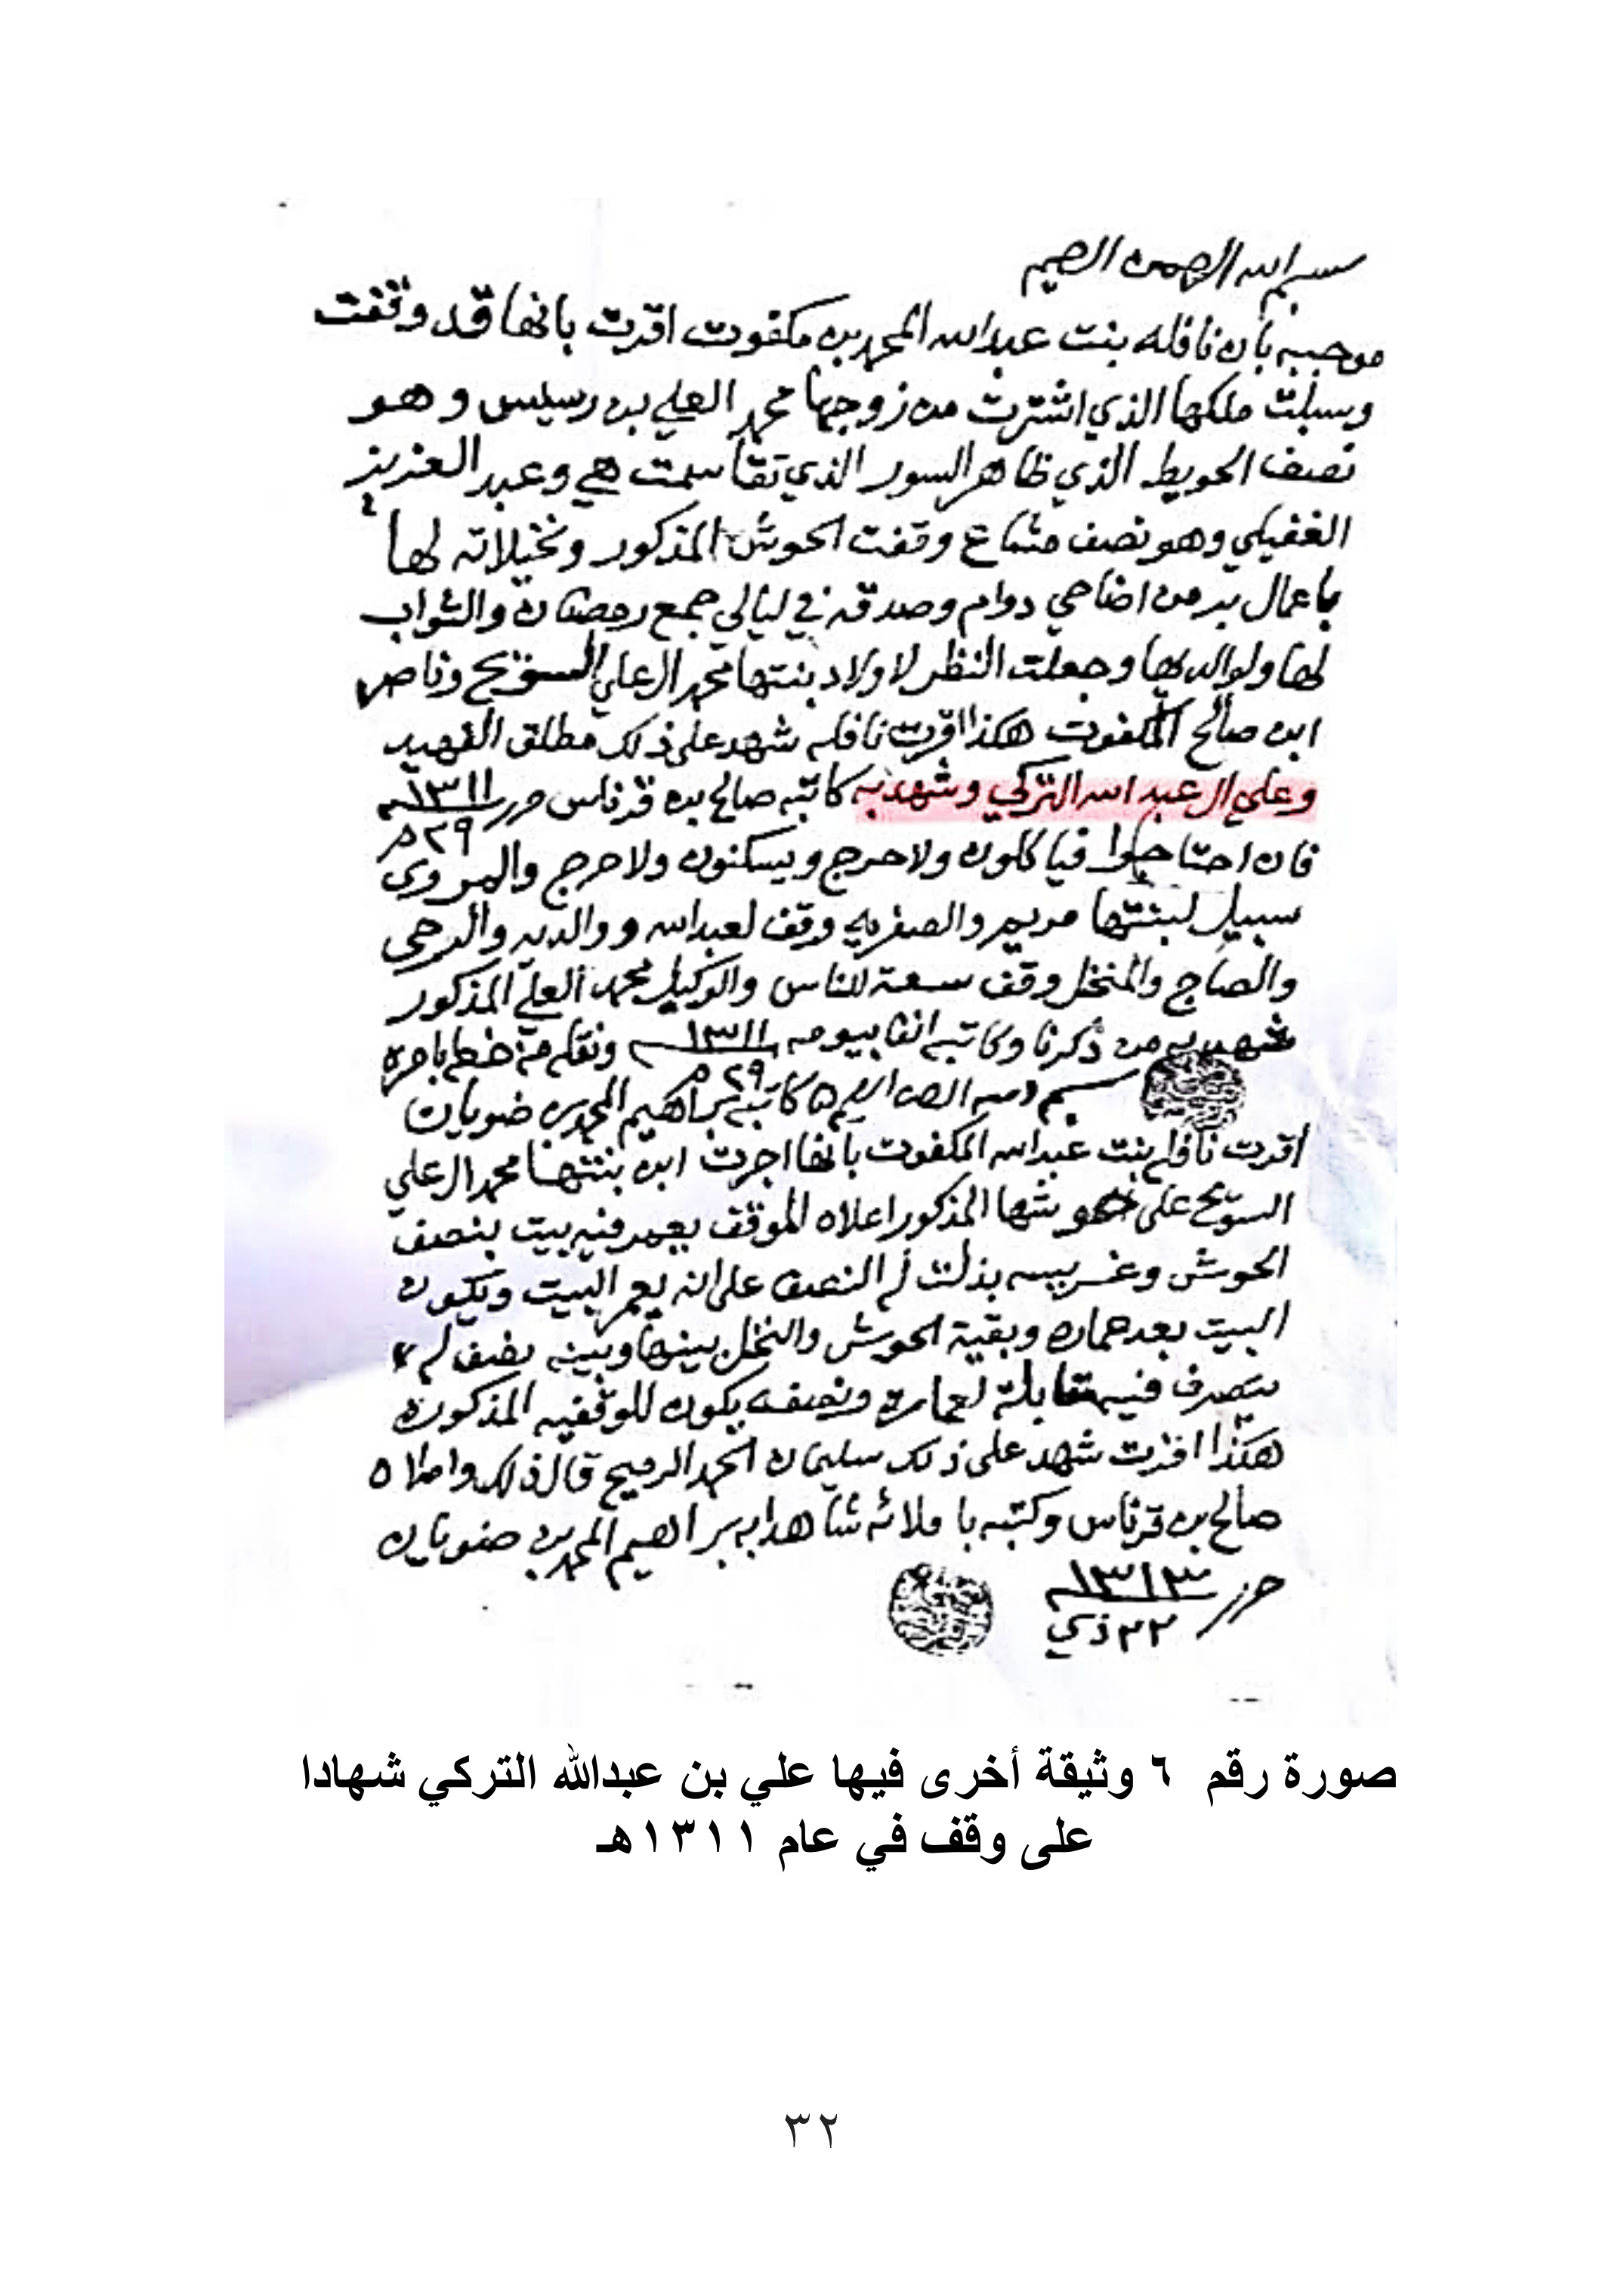 بسم الله الرحمن الرحيم
موجبه بأن نافله بنت عبدالله المحمد بن مكفوت اقرت بانها قد وقفت
وسبلت ملكها الذي اشترت من زوجها محمد العلي بن رسيس وهو
نصف الحويطه الذي ظاهر السور الذي تقاسمت هي وعبد العزيز
الغفيلي وهو نصف مشاع وقفت الحوش المذكور ونخيلاته لها
باعمال بر من اضاحي دوام وصدقه في ليالي جمع رمضان والثواب
لها ولوالديها وجعلت النظر لاولاد بنتها محمد ال علي السويح وناصر
ابن صالح المكفوت هكذا اقرت نافله شهد على ذلك مطلق الفهيد
وعلي ال عبد الله التركي وشهد به كاتبه صالح بن قرناس حرر ١٣١١
٢٩ م
فان احتاجوا فياكلون ولا حرج ويسكنون ولا حرج وال
سبيل لبنتها مريم والصفريه وقف لعبدالله ووالديه والرحى
والصاج والمنخل وقف سعة للناس والوكيل محمد العلي المذكور
شهد به من ذكرنا وكاتبه انفا بيومه ١٣١١ ونقله من خطه باحرفه
٢٩ م
بسم الله كاتبه براهيم المحمد بن ضويان
اقرت نافله بنت عبدالله المكفوت بانها اجرت ابن بنتها محمد ال علي
السويح على حوشها المذكور اعلاه الموقف يعمر فيه بيت بنصف
الحوش وغريسه بذلت له النصف على انه يعمر البيت ويكون
البيت بعد عماره وبقية الحوش والنخل بينها وبينه نصف له
يتصرف فيه مقابلة لعمارة ونصفه يكون للوقفيه المذكوره
هكذا اقرت شهد على ذلك سليمان الحمد الرميح قال ذلك واملاه
صالح بن قرناس وكتبه باملائه شاهدا به براهيم المحمد بن ضويان
حرر ١٣١٣
٢٢ ذي
صورة رقم ٦ وثيقة أخرى فيها علي بن عبدالله التركي شهادا
على وقف في عام ١٣١١هـ
٣٢